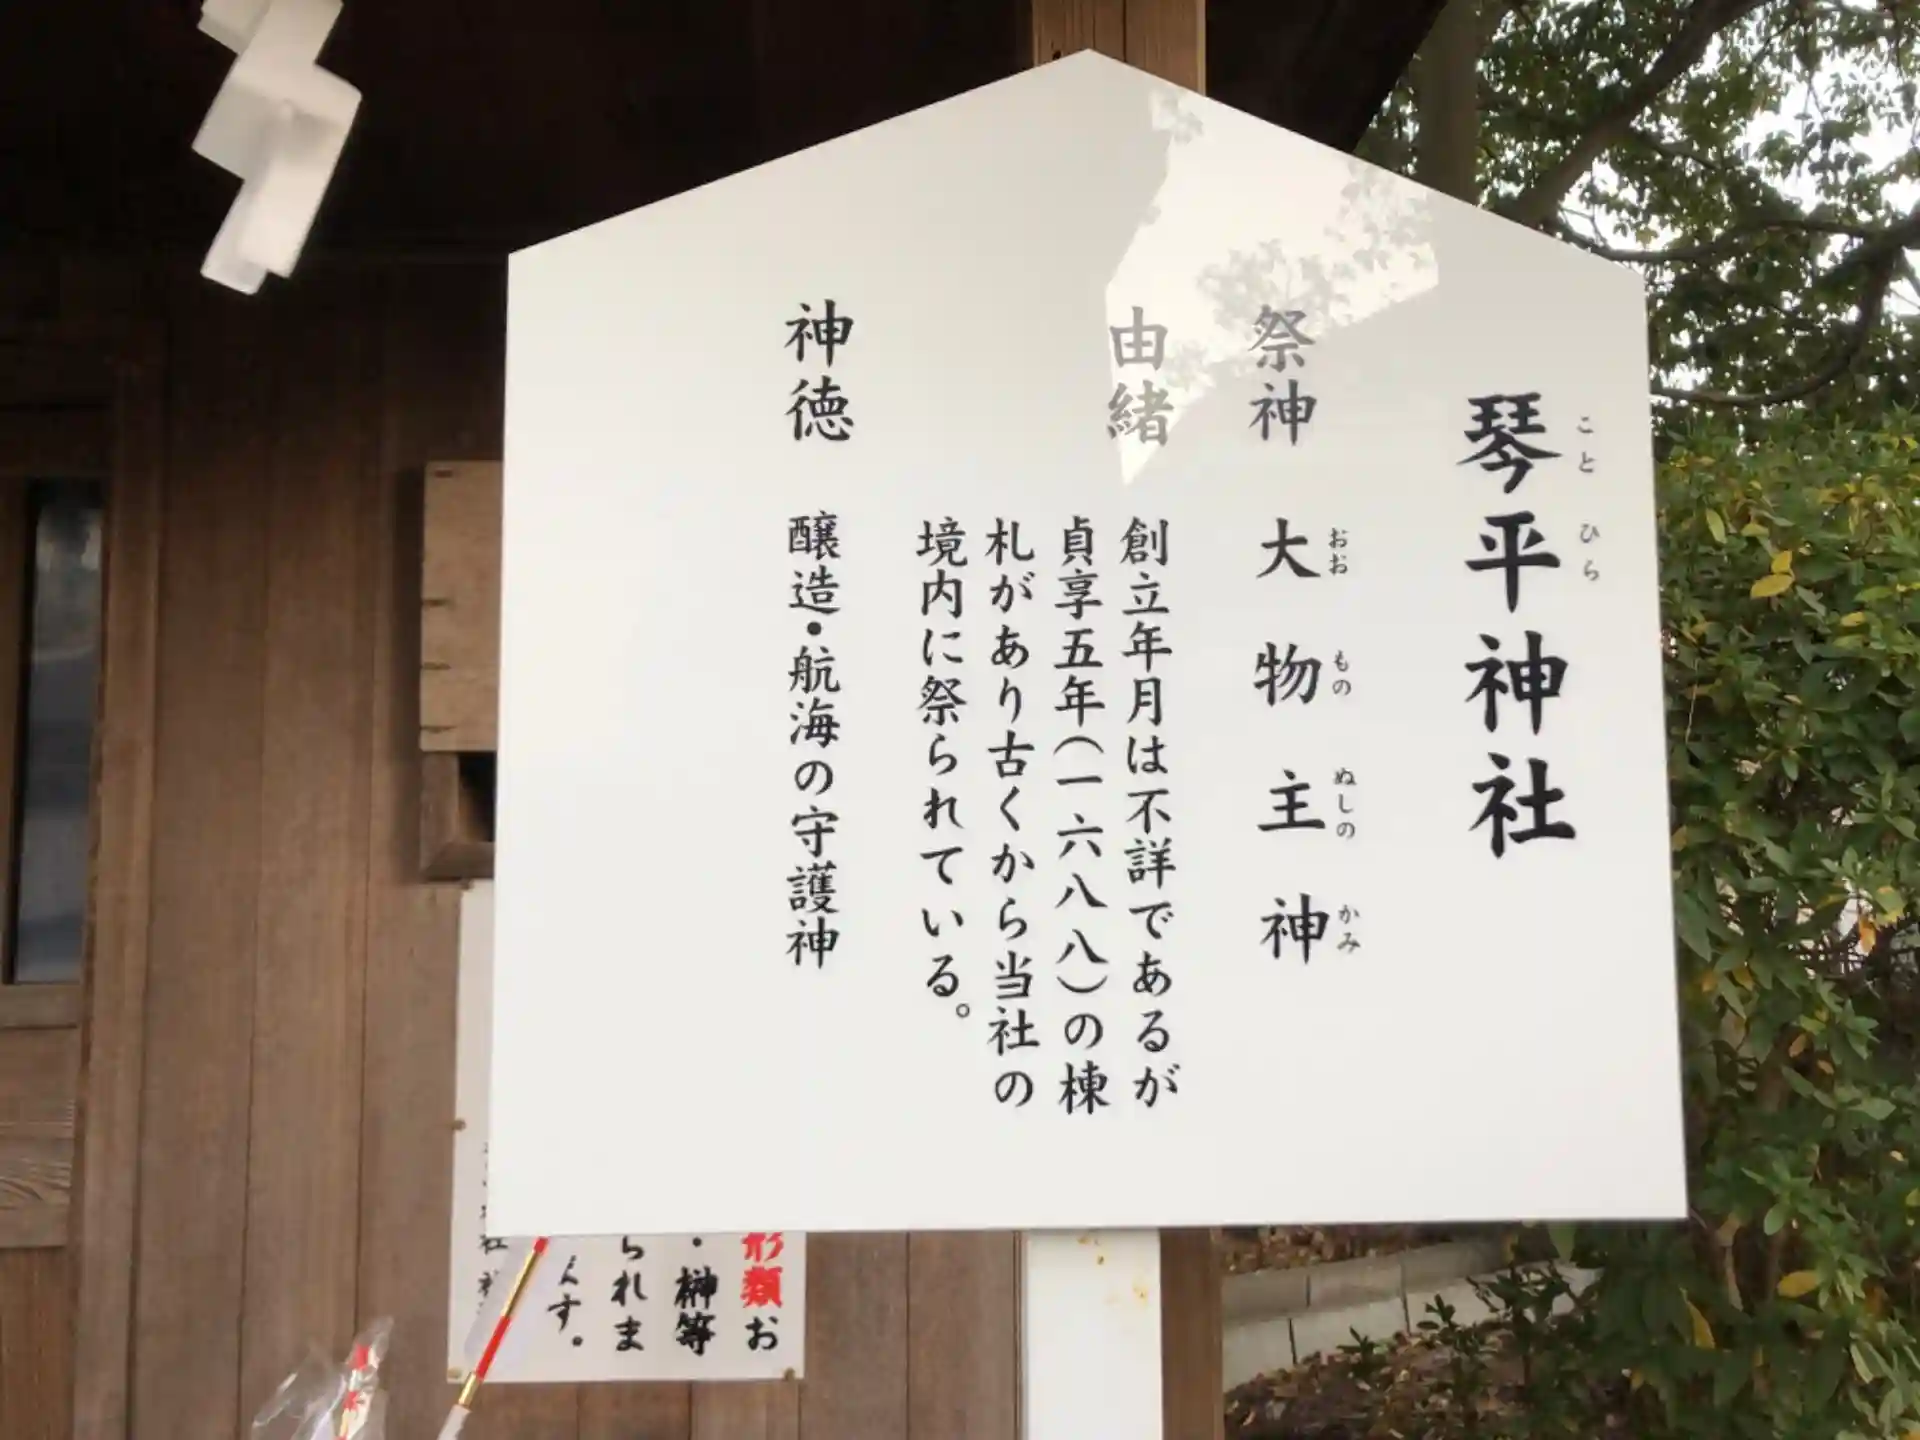 琴平神社
ことひら
祭神 大物主神
おおものぬしのかみ
由緒 創立年月は不詳であるが
貞享五年(一六八八)の棟
札があり古くから当社の
境内に祭られている。
神徳 醸造・航海の守護神
形類お
・榊等
られま
す。